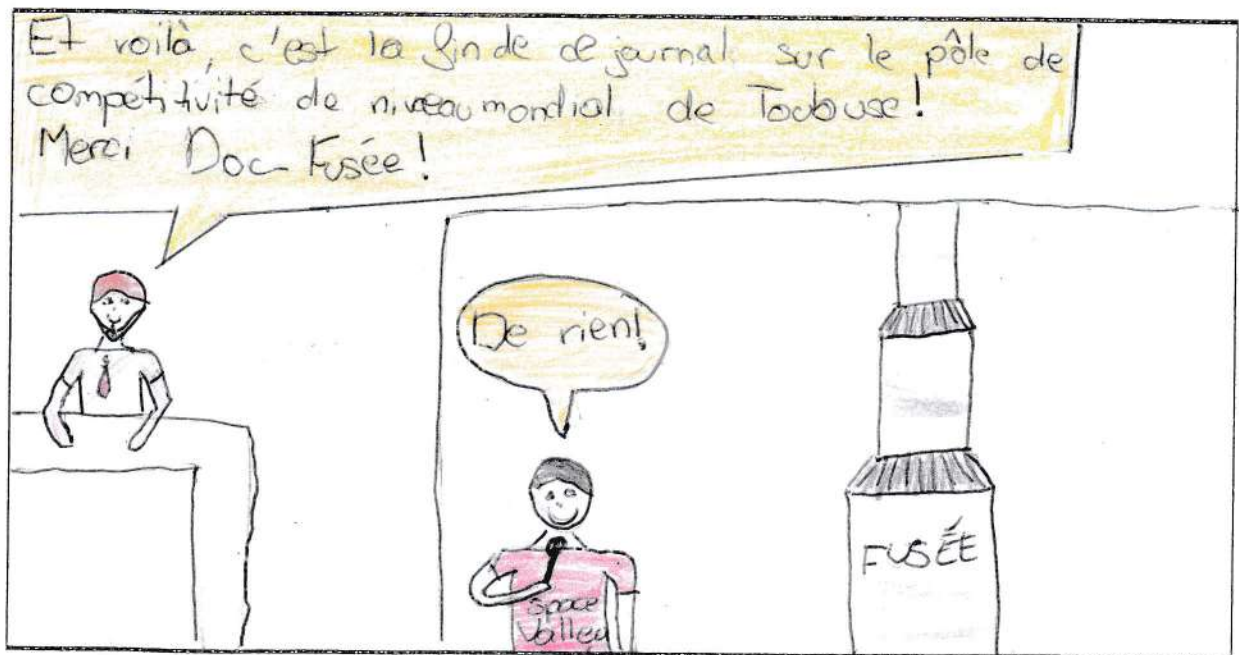 Et voilà, c'est la fin de ce journal sur le pôle de
compétitivité de niveau mondial de Toulouse!
Merci Doc Fusée!
De rien!
Space
Valley
FUSÉE